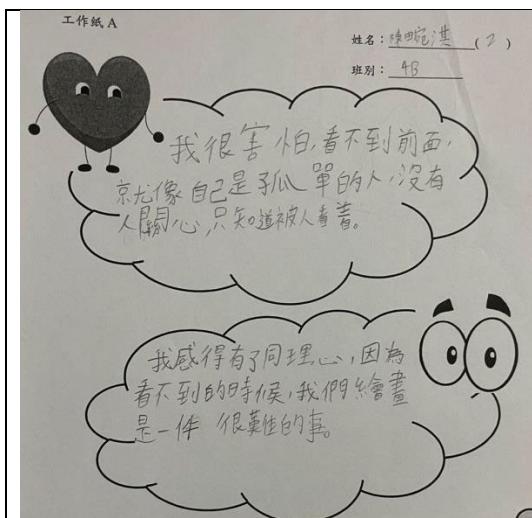 工作紙 A
姓名：陳畹淇 ( 2 )
班別：4B
我很害怕，看不到前面，
就像自己是孤單的人，沒有
人關心，只知道被人看着。
我感得有了同理心，因為
看不到的時候，我們繪畫
是一件 很難的事。